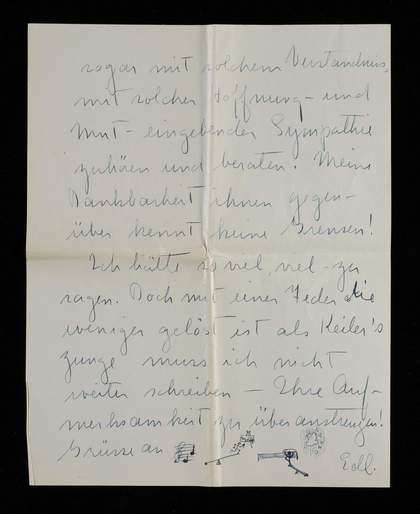 sogar mit solchem Verständnis,
mit solcher Hoffnung – und
Mut – eingebender Sympathie
zuhören und beraten. Meine
Dankbarkeit ihnen gegen-
über kennt keine Grenzen!
Ich hätte so viel, viel – zu
sagen. Doch mit einer Feder die
weniger gelöst ist als Keiler's
Zunge muss ich nicht
weiter schreiben – Ihre Auf-
merksamkeit zu überanstrengen!
Grüsse an
Edl.